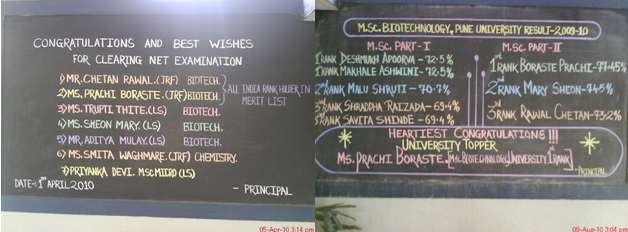 CONGRATULATIONS AND BEST WISHES
FOR CLEARING NET EXAMINATION
1) MR. CHETAN RAWAL. (JRF) BIOTECH.
2) MS. PRACHI BORASTE. (JRF) BIOTECH.
ALL INDIA RANK HOLDER IN
MERIT LIST
3) MS. TRUPTI THITE. (LS) BIOTECH.
4) MS. SHEON MARY. (LS) BIOTECH.
5) MR. ADITYA MULAY. (LS) BIOTECH.
6) MS. SMITA WAGHMARE. (JRF) CHEMISTRY.
7) PRIYANKA DEVI. MSC MICRO (LS)
DATE-: 1ST APRIL 2010
- PRINCIPAL
05-Apr-10 3:14 pm
M.SC. BIOTECHNOLOGY, PUNE UNIVERSITY RESULT-2009-10
M.SC. PART-I
1st RANK DESHMUKH APOORVA - 72.5%
1st RANK MAKHALE ASHWINI - 72.5%
2nd RANK MALU SHRUTI - 70.7%
3rd RANK SHRADDHA RAIZADA - 69.4%
3rd RANK SAVITA SHINDE - 69.4%
M.SC. PART-II
1st RANK BORASTE PRACHI - 77.45%
2nd RANK MARY SHEON - 74.5%
3rd RANK RAWAL CHETAN - 73.2%
HEARTIEST CONGRATULATIONS !!!
UNIVERSITY TOPPER
MS. PRACHI BORASTE. [M.SC. BIOTECHNOLOGY, UNIVERSITY 1st RANK]
- PRINCIPAL
09-Aug-10 3:04 pm